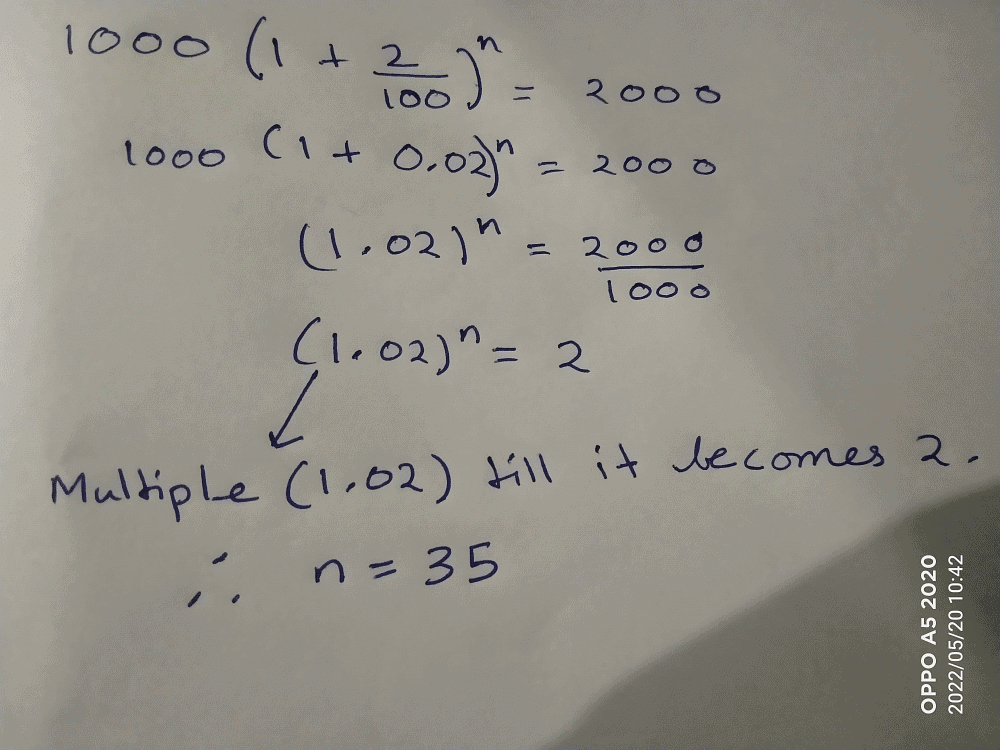 1000 (1 + 2/100)^n = 2000
1000 (1 + 0.02)^n = 2000
(1.02)^n = 2000/1000
(1.02)^n = 2
Multiple (1.02) till it becomes 2.
∴ n = 35
OPPO A5 2020
2022/05/20 10:42